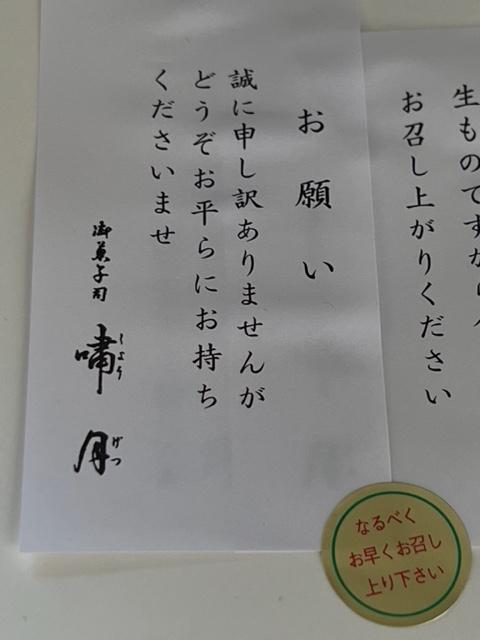 お願い
誠に申し訳ありませんが
どうぞお平らにお持ち
くださいませ
御菓子司
嘯月
しょう
げつ
生ものですから
お召し上がりください
なるべく
お早くお召し
上り下さい